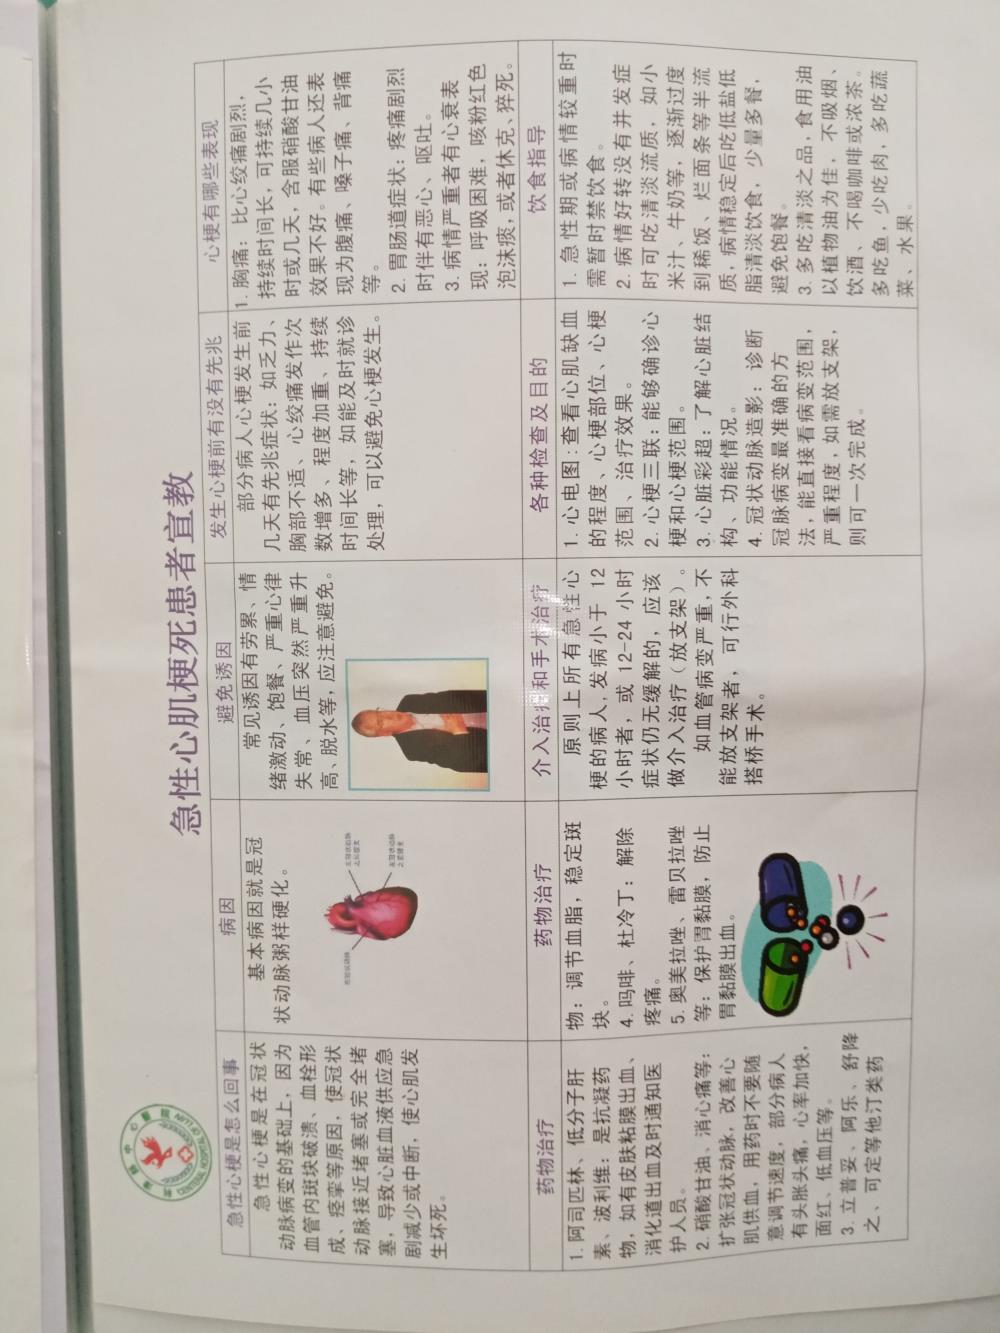 急性心肌梗死患者宣教
急性心梗是怎么回事
急性心梗是在冠状
动脉病变的基础上，因为
血管内斑块破溃、血栓形
成、痉挛等原因，使冠状
动脉接近堵塞或完全堵
塞，导致心脏血液供应急
剧减少或中断，使心肌发
生坏死。
病因
基本病因就是冠
状动脉粥样硬化。
避免诱因
常见诱因有劳累、情
绪激动、饱餐、严重心律
失常、血压突然严重升
高、脱水等，应注意避免。
发生心梗前有没有先兆
部分病人心梗发生前
几天有先兆症状：如乏力、
胸部不适、心绞痛发作次
数增多、程度加重、持续
时间长等，如能及时就诊
处理，可以避免心梗发生。
心梗有哪些表现
1. 胸痛：比心绞痛剧烈，
持续时间长，可持续几小
时或几天，含服硝酸甘油
效果不好。有些病人还表
现为腹痛、嗓子痛、背痛
等。
2. 胃肠道症状：疼痛剧烈
时伴有恶心、呕吐。
3. 病情严重者有心衰表
现：呼吸困难，咳粉红色
泡沫痰，或者休克、猝死。
药物治疗
1. 阿司匹林、低分子肝
素、波利维：是抗凝药
物，如有皮肤粘膜出血、
消化道出血及时通知医
护人员。
2. 硝酸甘油、消心痛等：
扩张冠状动脉，改善心
肌供血，用药时不要随
意调节速度，部分病人
有头胀头痛，心率加快，
面红、低血压等。
3. 立普妥、阿乐、舒降
之、可定等他汀类药
药物治疗
物：调节血脂，稳定斑
块。
4. 吗啡、杜冷丁：解除
疼痛。
5. 奥美拉唑、雷贝拉唑
等：保护胃黏膜，防止
胃黏膜出血。
介入治疗和手术治疗
原则上所有急性心
梗的病人，发病小于 12
小时者，或 12-24 小时
症状仍无缓解的，应该
做介入治疗（放支架）。
如血管病变严重，不
能放支架者，可行外科
搭桥手术。
各种检查及目的
1. 心电图：查看心肌缺血
的程度、心梗部位、心梗
范围、治疗效果。
2. 心梗三联：能够确诊心
梗和心梗范围。
3. 心脏彩超：了解心脏结
构、功能情况。
4. 冠状动脉造影：诊断
冠脉病变最准确的方
法，能直接看病变范围，
严重程度，如需放支架，
则可一次完成。
饮食指导
1. 急性期或病情较重时
需暂时禁饮食。
2. 病情好转没有并发症
时可吃清淡流质，如小
米汁、牛奶等，逐渐过度
到稀饭、烂面条等半流
质，病情稳定后吃低盐低
脂清淡饮食，少量多餐，
避免饱餐。
3. 多吃清淡之品，食用油
以植物油为佳，不吸烟、
饮酒、不喝咖啡或浓茶。
多吃鱼，少吃肉，多吃蔬
菜、水果。